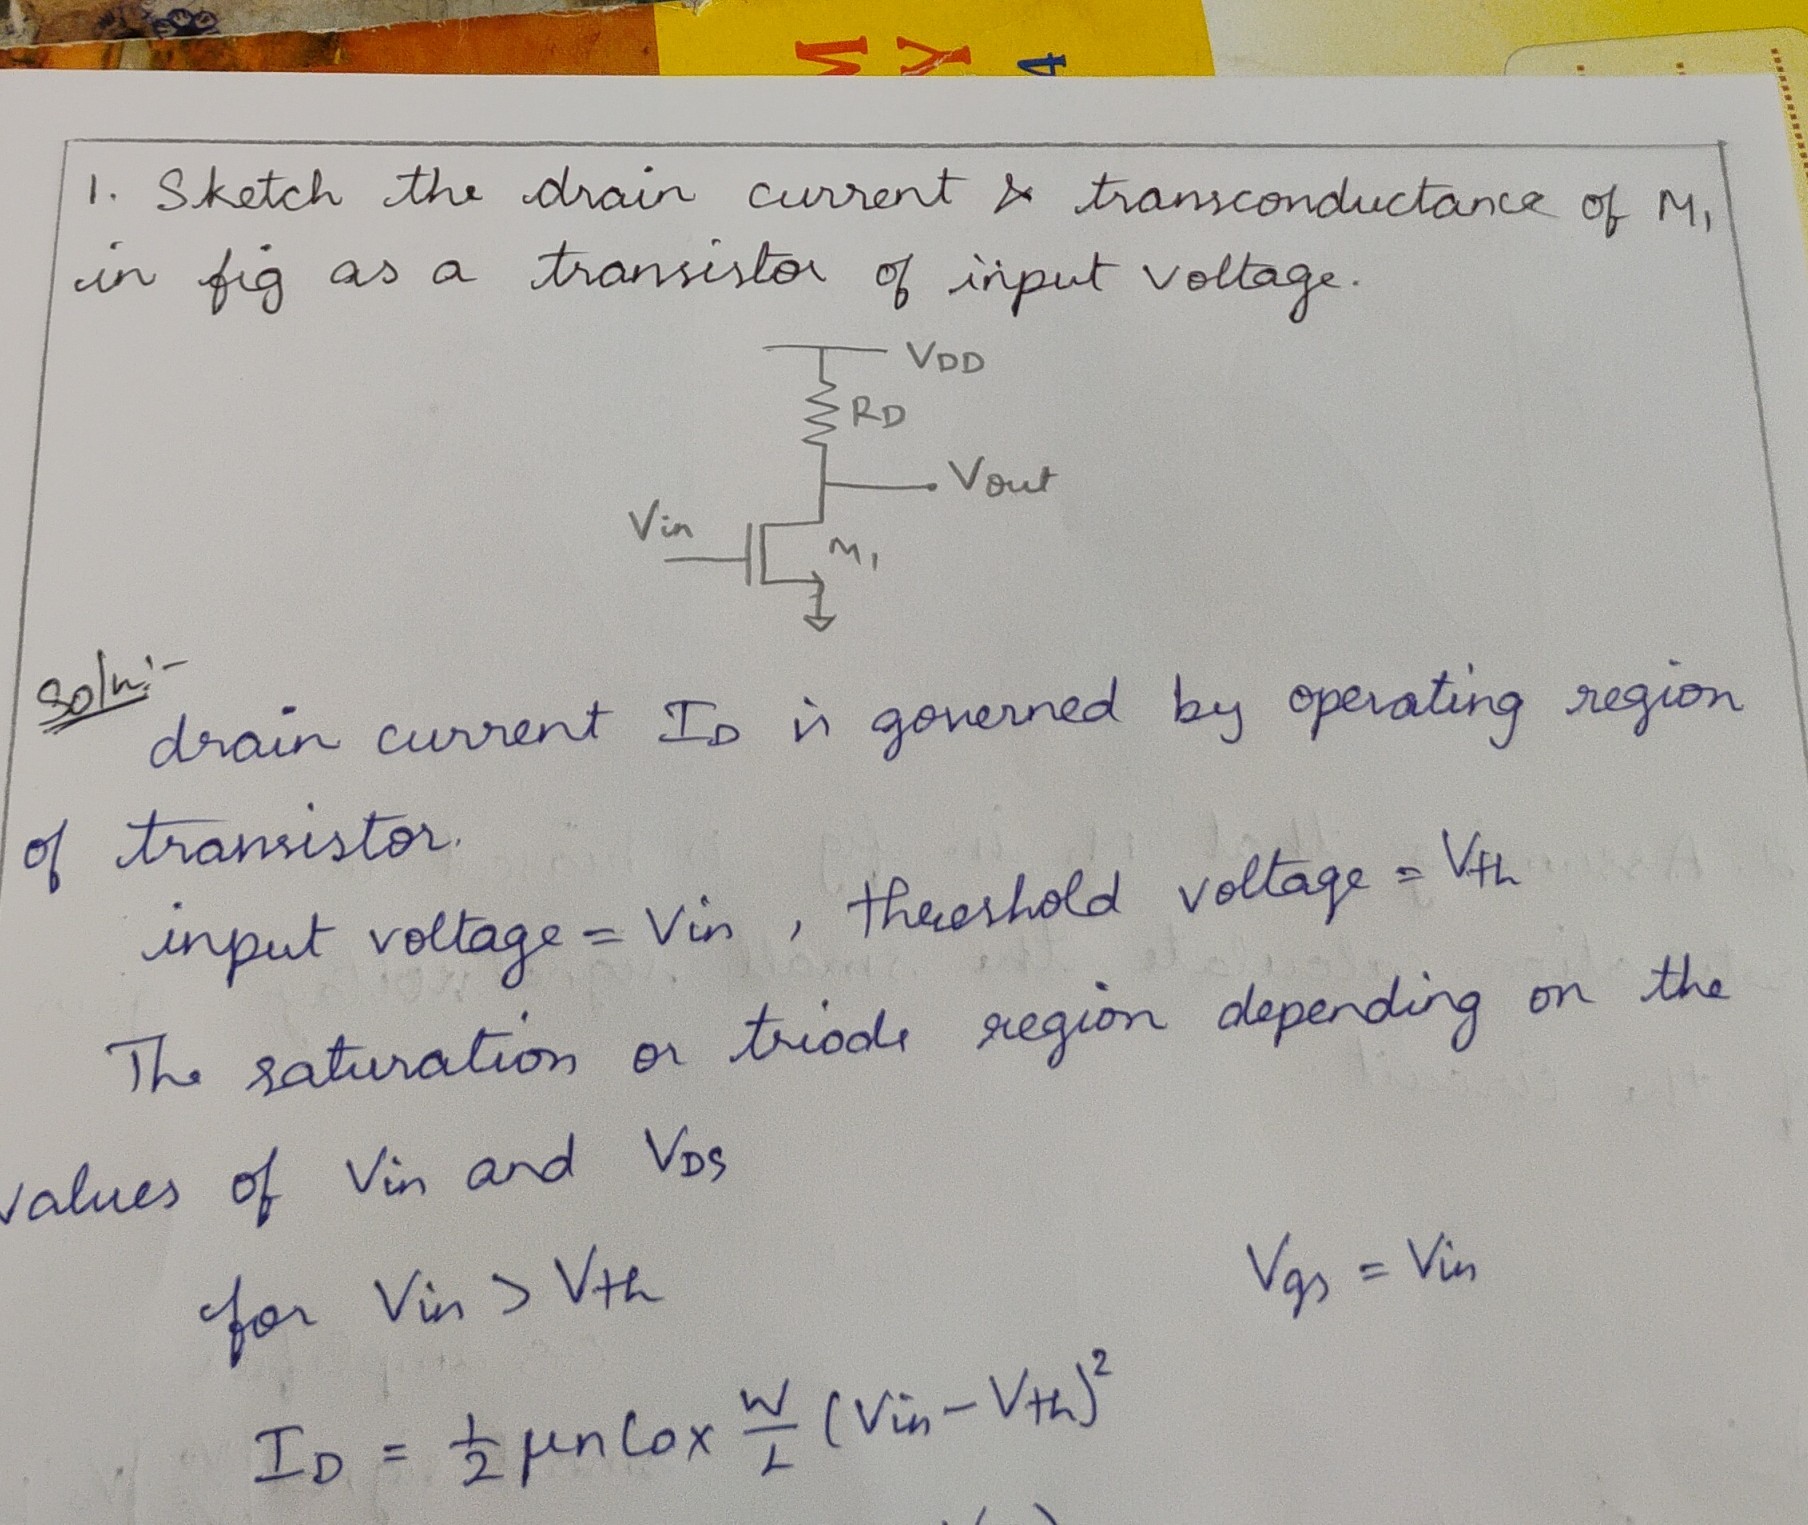 M
Y
4
1. Sketch the drain current & transconductance of M1
in fig as a transistor of input voltage.
VDD
RD
Vout
Vin
M1
Soln:-
drain current ID is governed by operating region
of transistor.
input voltage = Vin , threshold voltage = Vth
The saturation or triode region depending on the
values of Vin and VDS
for Vin > Vth
Vgs = Vin
ID = 1/2 μn Cox W/L (Vin - Vth)²